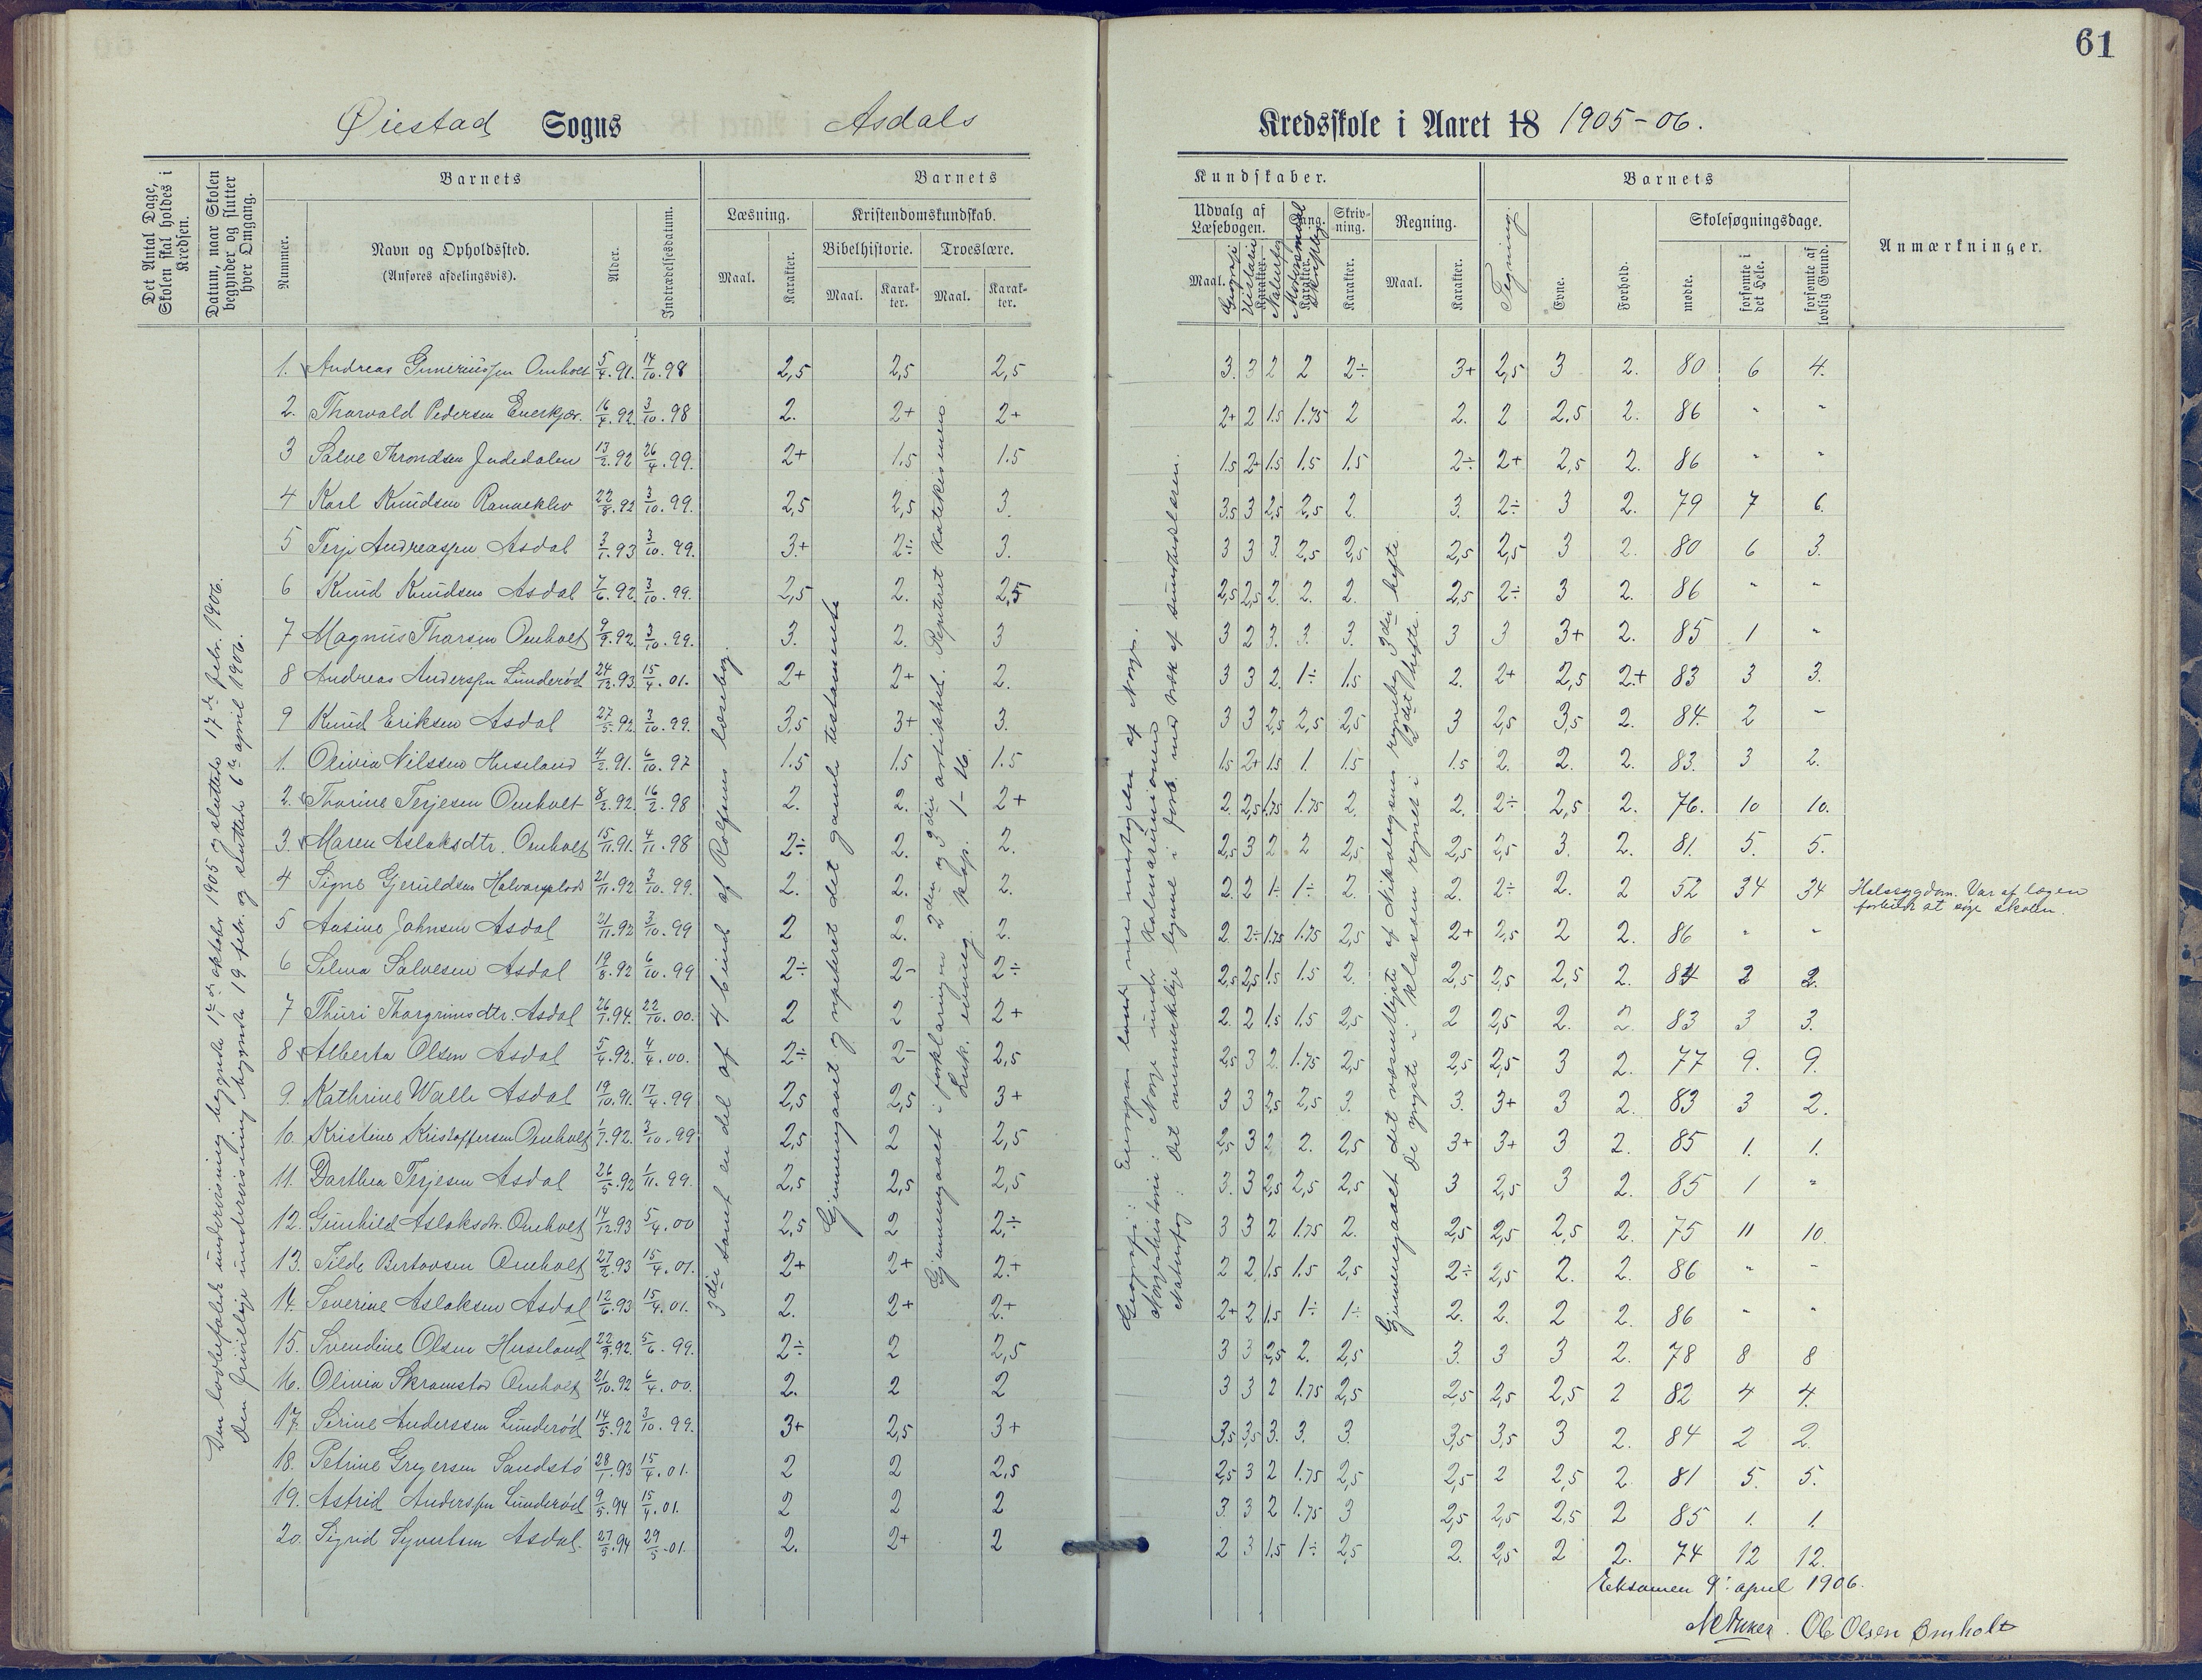 61
Øiestad Sogns Asdals Kredsskole i Aaret 18 1905-06.
Det Antal Dage, Skolen skal holdes i Kredsen.
Datum, naar Skolen begynder og slutter hver Omgang.
Barnets
Nummer.
Navn og Opholdssted.
(Anføres afdelingsvis).
Alder.
Indtrædelsesdatum.
Barnets
Læsning.
Maal.
Karakter.
Kristendomskundskab.
Bibelhistorie.
Maal.
Karakter.
Troeslære.
Maal.
Karakter.
Kundskaber.
Udvalg af Læsebogen.
Maal.
Geografi
Historie
Karakter.
Naturfag
Sang.
Karakter.
Modersmaal skriftlig
Skrivning.
Karakter.
Regning.
Maal.
Karakter.
Tegning.
Barnets
Evne.
Forhold.
Skolesøgningsdage.
mødte.
forsømte i det Hele.
forsømte af lovlig Grund.
Anmærkninger.
Den lovbefalede undervisning begyndte 17de oktober 1905 og sluttede 17de febr. 1906.
Den frivillige undervisning begyndte 19 febr. og sluttede 6te april 1906.
3die samt en del af 4 bind af Rolfsens læsebog.
Gjennemgaaet og repeteret det gamle testamente
Gjennemgaaet i forklaringen 2den og 3die artikkel. Repeteret katekismen.
Luk. evang. Kap. 1-16.
Geografi: Europas land med undtagelse af Norge.
Norgeshistorie: Norge under Kalmarunionen
Naturfag: Det menneskelige legeme i forb. med stk af sundhedslæren.
Gjennemgaaet det væsentligste af Nikolaysens regnebog 3die hefte.
De yngste i klassen regnet i 2det hefte.
1. Andreas Gunerius­sen Omholt 5/4.91. 14/10.98 2,5 2,5 2,5 3. 3 2 2 2÷ 3+ 2,5 3 2. 80 6 4.
2. Thorvald Pedersen Enerkjær. 16/4.92. 3/10.98 2. 2+ 2+ 2+ 2 1.5 1.75 2 2. 2 2,5 2. 86 " "
3 Salve Throndsen Indedalen 13/2.92 26/4.99. 2+ 1.5 1.5 1.5 2+ 1.5 1.5 1.5 2÷ 2+ 2,5 2. 86 " "
4 Karl Knudsen Ranneklev 22/8.92 3/10.99. 2,5 2,5 3. 3.5 3 2,5 2,5 2. 3. 2÷ 3 2. 79 7 6.
5 Terje Andreassen Asdal 3/1.93 3/10.99. 3+ 2÷ 3. 3 3 3. 2,5 2,5 2,5 2,5 3 2. 80 6 3.
6 Knud Knudsen Asdal 7/6.92. 3/10.99. 2,5 2. 2,5 2,5 2,5 2. 2. 2. 2,5 2÷ 3 2. 86 " "
7 Magnus Thorsen Omholt 9/9.92. 3/10.99. 3. 2. 3 3 2 3. 3. 3. 3 3 3+ 2. 85 1 "
8 Andreas Anderssen Lunderød 24/12.93. 15/4.01. 2+ 2+ 2. 3 3 2. 1÷ 1.5 2. 2+ 2,5 2+ 83 3 3.
9 Knud Eriksen Asdal 27/5.92. 3/10.99. 3,5 3+ 3. 3 3 2,5 2,5 2,5 3 2,5 3,5 2. 84. 2 -
1. Olivia Nilssen Huseland 4/2.91. 6/10.97 1.5 1.5 1.5 1.5 2+ 1.5 1. 1.5 1.5 2. 2. 2. 83. 3 2.
2. Thorine Terjesen Omholt 8/2.92. 16/2.98 2. 2. 2+ 2. 2,5 1.75 1.75 2. 2. 2÷ 2,5 2. 76. 10 10.
3. Maren Aslaksdtr. Omholt 15/11.91. 4/11.98 2÷ 2. 2. 2,5 3 2 2 2,5 2,5 2,5 3. 2. 81. 5. 5.
4 Signe Gjeruldsen 21/11.92 3/10.99. 2. 2. 2. 2 2 1÷ 1÷ 2. 2. 2÷ 2. 2 52 34 34 Halssygdom. Var af lægen
forbudt at søge skolen.
5 Aasine Johnsen Asdal 21/11.92 3/10.99 2 2. 2. 2 2÷ 1.75 1.75 2,5 2+ 2,5 2 2. 86 " "
6 Selma Salvesen Asdal 19/8.92 6/10.99 2÷ 2- 2÷ 2,5 2,5 1.5 1.5 2. 2,5 2,5 2,5 2. 84 2 2.
7 Thuri Thorgrimsdtr. Asdal 26/1.94. 22/10.00. 2 2 2+ 2. 2 1.5 1.5 2,5 2 2,5 2. 2. 83 3 3.
8 Alberta Olsen Asdal 5/4.92. 4/4.00. 2÷ 2- 2,5 2,5 3 2. 1.75 2,5 2,5 2,5 3 2. 77 9. 9.
9. Kathrine Walle Asdal 19/10.91. 17/4.99 2,5 2,5 3+ 3 3 2,5 2,5 3. 3. 3+ 3 2. 83 3 2.
10. Kristine Kristoffersen Omholt 1/7.92. 3/10.99 2,5 2 2,5 2,5 3 2 2. 2,5 3+ 3+ 3 2. 85 1. 1.
11. Dorthea Terjesen Asdal 26/5.92 1/11.99. 2,5 2,5 2,5 3. 3 2,5 2,5 2,5 3 2,5 3 2. 85 1 "
12. Gunhild Aslaksdtr. Omholt 14/12.93 5/4.00 2,5 2 2÷ 3 3 2 1.75 2. 2,5 2,5 2,5 2. 75 11 10.
13. Tilde Bertovsen Omholt 27/2.93 15/4.01. 2+ 2+ 2+ 2 2 1.5 1.5 2,5 2÷ 2,5 2. 2. 86 " -
14. Severine Aslaksen Asdal 12/6.93 15/4.01. 2. 2+ 2+ 2+ 2 1.5 1÷ 1÷ 2. 2. 2 2. 86 " "
15. Svendine Olsen Huseland 22/9.92. 5/6.99. 2÷ 2 2,5 3 3 2,5 2. 2,5 3. 3 3 2. 78 8 8
16. Olivia Skramstad Omholt 21/10.92 6/4.00. 2. 2 2 3 3 2 1.75 2,5 2,5 2,5 2,5 2 82 4 4.
17. Serine Anderssen Lunderød 14/5.92 3/10.99. 3+ 2,5 3+ 3,5 3,5 3. 3. 3. 3,5 3,5 3 2. 84 2 2.
18. Petrine Gregersen Sandstø 28/1.93 15/4.01. 2 2 2,5 2,5 3 2 1.75 2,5 2,5 2 2,5 2. 81 5. 5.
19. Astrid Anderssen Lunderød 9/5.94 15/4.01. 2 2 2 3. 3 2 1.75 3 2,5 2,5 2,5 2 85 1. 1.
20. Sigrid Syvertsen Asdal. 27/5.94 29/5-01. 2. 2+ 2 2 3 1.5 1÷ 2,5 2. 2,5 2 2. 74 12 12.
Eksamen 9: april 1906.
Ole Olsen Omholt